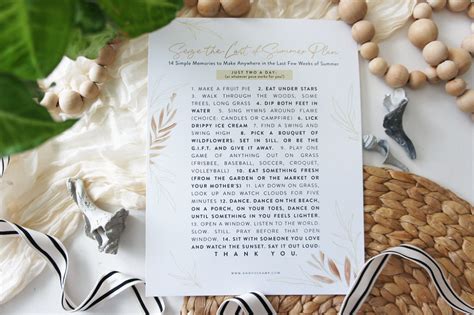 Seize the Last of Summer Plan
14 Simple Memories to Make Anywhere in the Last Few Weeks of Summer
JUST TWO A DAY:
(or whatever pace works for you!)
1. MAKE A FRUIT PIE  2. EAT UNDER STARS
3. WALK THROUGH THE WOODS, SOME
TREES, LONG GRASS  4. DIP BOTH FEET IN
WATER  5. SING HYMNS AROUND FLAME
(CHOICE: CANDLES OR CAMPFIRE)  6. LICK
DRIPPY ICE CREAM  7. FIND A SWING AND
SWING HIGH  8. PICK A BOUQUET OF
WILDFLOWERS: SET IN SILL, OR BE THE
G.I.F.T. AND GIVE IT AWAY.  9. PLAY ONE
GAME OF ANYTHING OUT ON GRASS
(FRISBEE, BASEBALL, SOCCER, CROQUET,
VOLLEYBALL)  10. EAT SOMETHING FRESH
(FROM THE GARDEN OR THE MARKET OR
YOUR MOTHER'S)  11. LAY DOWN ON GRASS,
LOOK UP AND WATCH CLOUDS FOR FIVE
MINUTES.  12. DANCE. DANCE ON THE BEACH,
ON A PORCH, ON YOUR TOES, DANCE ON
UNTIL SOMETHING IN YOU FEELS LIGHTER.
13. OPEN A WINDOW, LISTEN TO THE WORLD
SLOW. STILL. PRAY BEFORE THAT OPEN
WINDOW.  14. SIT WITH SOMEONE YOU LOVE
AND WATCH THE SUNSET. SAY IT OUT LOUD:
THANK YOU.